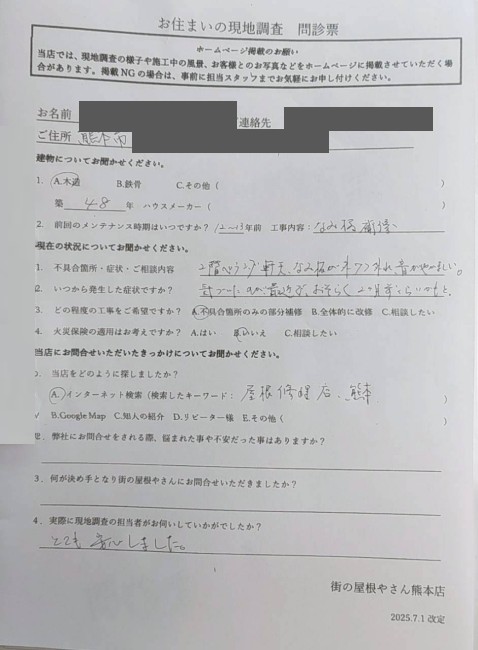 お住まいの現地調査 問診票
ホームページ掲載のお願い
当店では、現地調査の様子や施工中の風景、お客様とのお写真などをホームページに掲載させていただく場
合があります。掲載NGの場合は、事前に担当スタッフまでお気軽にお申し付けください。
お名前 連絡先
ご住所 熊本市
建物についてお聞かせください。
1. A.木造 B.鉄骨 C.その他( )
築 48 年 ハウスメーカー( )
2. 前回のメンテナンス時期はいつですか? 12〜13年前 工事内容:なみ板
現在の状況についてお聞かせください。
1. 不具合箇所・症状・ご相談内容 2階ベランダ軒天、なみ板が
2. いつから発生した症状ですか? のが最近で、おそらく2ヶ月
3. どの程度の工事をご希望ですか? A.不具合箇所のみの部分補修 B.全体的に改修 C.相談したい
4. 火災保険の適用はお考えですか? A.はい B.いいえ C.相談したい
当店にお問合せいただいたきっかけについてお聞かせください。
当店をどのように探しましたか?
A.インターネット検索(検索したキーワード: 屋根修理店、熊本 )
B.Google Map C.知人の紹介 D.リピーター様 E.その他( )
弊社にお問合せをされる際、悩まれた事や不安だった事はありますか?
3. 何が決め手となり街の屋根やさんにお問合せいただきましたか?
4. 実際に現地調査の担当者がお伺いしていかがでしたか?
とても安心しました。
街の屋根やさん熊本店
2025.7.1 改定